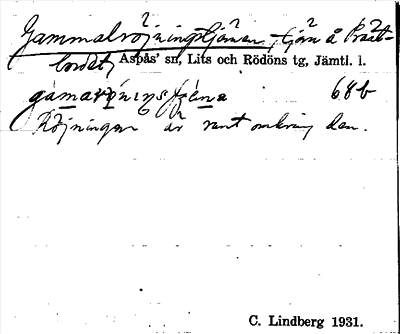 Gammalröjningstjärnen, tjärn å Präst-
bordet, Aspås' sn, Lits och Rödöns tg, Jämtl. l.
68b
Röjningen är runt omkring den.
C. Lindberg 1931.